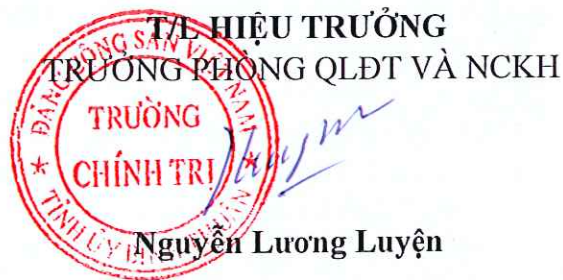 T/L HIỆU TRƯỞNG
TRƯỞNG PHÒNG QLĐT VÀ NCKH
ĐẢNG CỘNG SẢN VIỆT NAM
TRƯỜNG
CHÍNH TRỊ
TỈNH ỦY
Nguyễn Lương Luyện